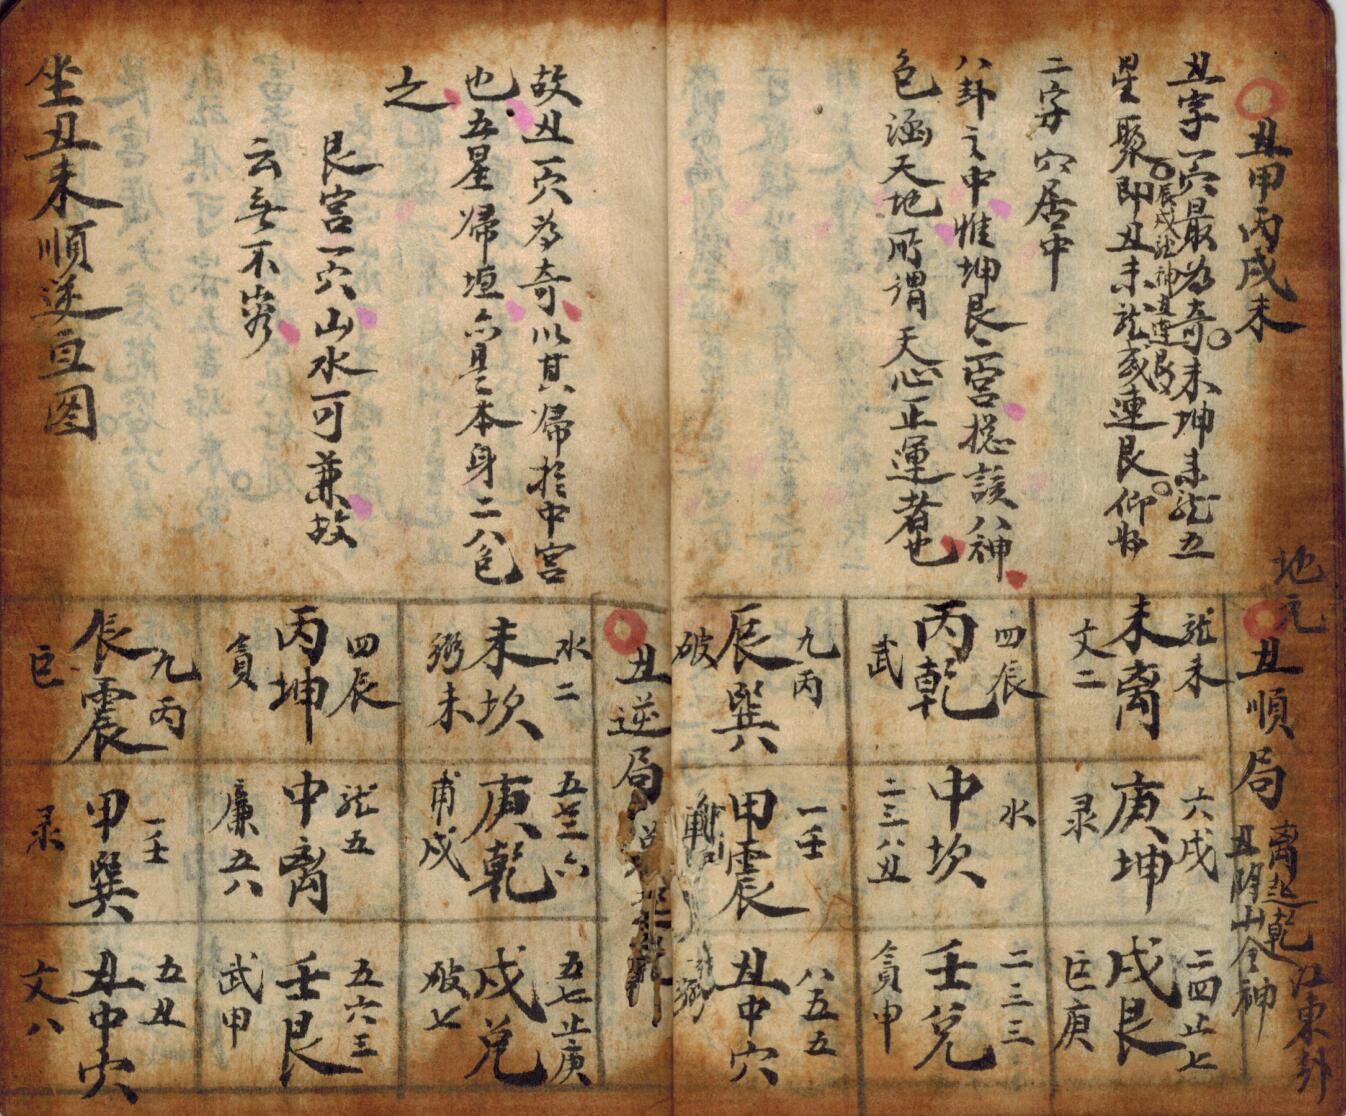 丑甲丙戌未
丑字一穴最为奇未坤未龙五
星聚即丑未龙或連艮仰
辰戌龙神
二字穴居中
八卦之中惟坤艮二宫揔該八神
色涵天地所谓天心正運者也
故丑一穴为奇以其帰於中宫
也五星帰垣六是本身二八色
之
艮宫一穴山水可兼故
云妻不
坐丑未順逆亘图
地元
丑順局
离起乾
江東卦
龙未
未离
文二
四辰
丙乾
武
九丙
辰巽
破
六戌
庚坤
录
水
中坎
二三八丑
一壬
甲震
二四止七
戌艮
巨庚
二三三
壬兌
貪甲
八五五
丑中穴
丑逆局
水二
未坎
弼未
四辰
丙坤
貪
九丙
辰震
巨
五三六
庚乾
甫戌
龙五
中离
廉五六
一壬
甲巽
录
五七止庚
戌兌
破七
五六三
壬艮
武甲
五丑
丑中穴
文八